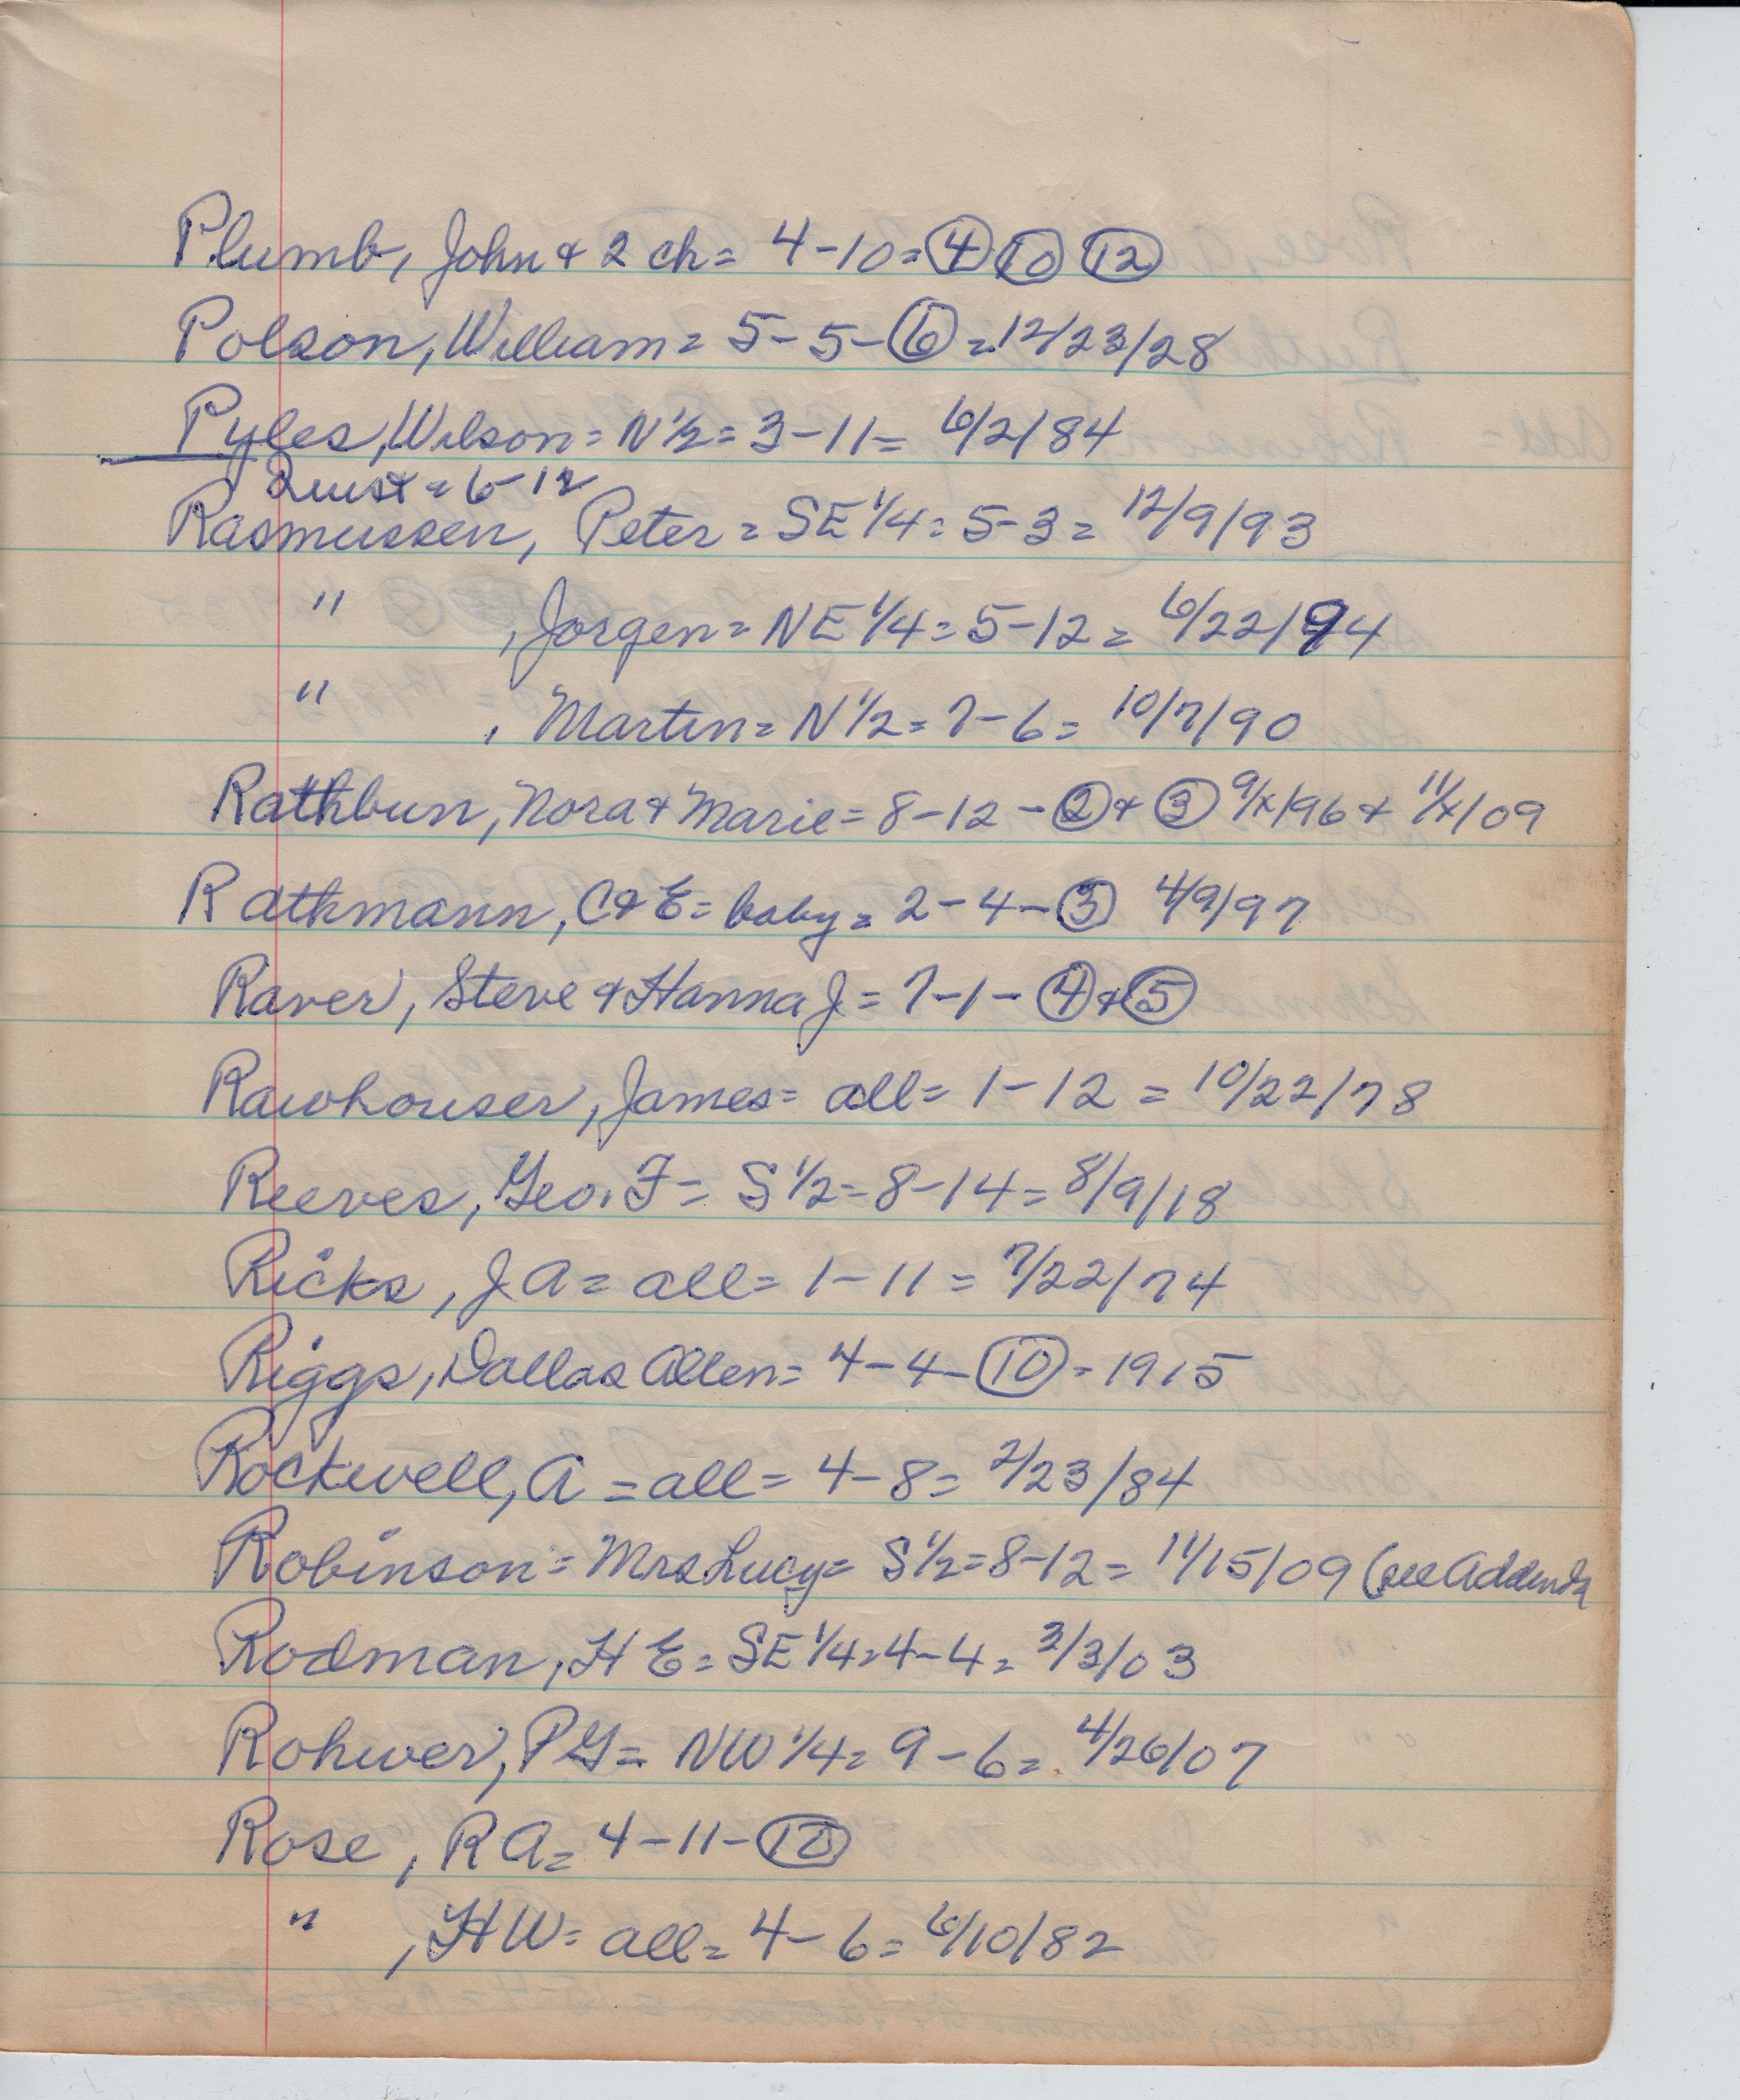 Plumb, John & 2 ch = 4-10 = ④ ⑩ ⑫
Polson, William = 5-5-⑥ = 12/23/28
Pyles, Wilson = N 1/2 = 3-11 = 6/2/84
Quist = 6-12
Rasmussen, Peter = SE 1/4 = 5-3 = 12/9/93
" , Jorgen = NE 1/4 = 5-12 = 6/22/94
" , Martin = N 1/2 = 7-6 = 10/7/90
Rathbun, Nora & Marie = 8-12-② & ③ 9/x/96 & 11/x/09
Rathmann, C & E = baby = 2-4-③ 4/9/97
Raver, Steve & Hanna J = 7-1-④ & ⑤
Rawhouser, James = all = 1-12 = 10/22/78
Reeves, Geo. F = S 1/2 = 8-14 = 8/9/18
Ricks, J A = all = 1-11 = 7/22/74
Riggs, Dallas Allen = 4-4-⑩ = 1915
Rockwell, A = all = 4-8 = 2/23/84
Robinson = Mrs Lucy = S 1/2 = 8-12 = 11/15/09 (see Addenda
Rodman, H E = SE 1/4 = 4-4 = 3/3/03
Rohwer, P G = NW 1/4 = 9-6 = 4/26/07
Rose, R A = 4-11-
" , H W = all = 4-6 = 6/10/82